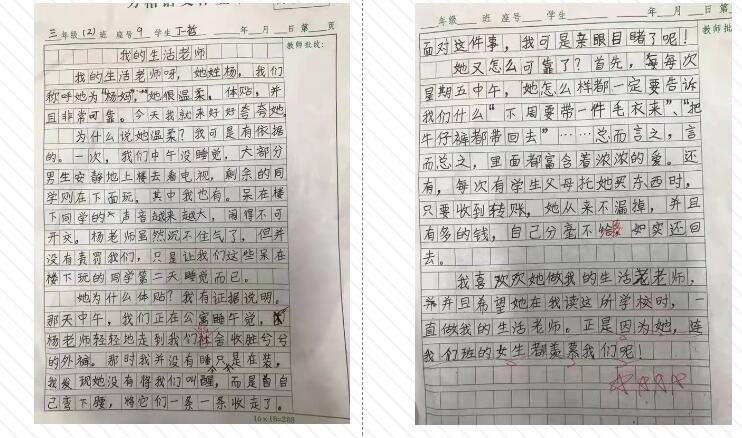 三年级(2)班 座号9 学生丁一哲 年 月 日第 页
教师批改：
我的生活老师
我的生活老师呀，她姓杨，我们
称呼她为“杨妈”，她很温柔、体贴，并
且非常可靠。今天我就来好好夸夸她。
为什么说她温柔？我可是有依据
的。一次，我们中午没睡觉，大部分
男生安静地上楼去看电视，剩余的同
学则在下面玩，其中我也有。呆在楼
下同学的声音越来越大，闹得不可
开交。杨老师虽然沉不住气了，但并
没有责罚我们，只是让我们这些呆在
楼下玩的同学第二天睡觉而已。
她为什么体贴？我有证据说明。
那天中午，我们正在公寓睡午觉，
杨老师轻轻地走到我们 会收脏兮兮
的外裤。那时我并没有睡只是在装，
我发现她没有将我们叫醒，而是自己
弯下腰，将它们一条一条收走了。
16×18=288
年级 班 座号 学生 年 月 日第
教师批
面对这件事，我可是亲眼目睹了呢！
她又怎么可靠了？首先，每每次
星期五中午，她怎么样都一定要告诉
我们什么“下周要带一件毛衣来”、“把
牛仔裤都带回去”……总而言之，言
而总之，里面都富含着浓浓的爱。还
有，每次有学生父母托她买东西时，
只要收到转账，她从来不漏掉，并且
有多的钱，自己分毫不 ，如实还回
去。
我喜欢欢她做我的生活老老师，
并并且希望她在我读这所学校时，一
直做我的生活老师。正是因为她，连
我们班的女生都羡慕我们呢！